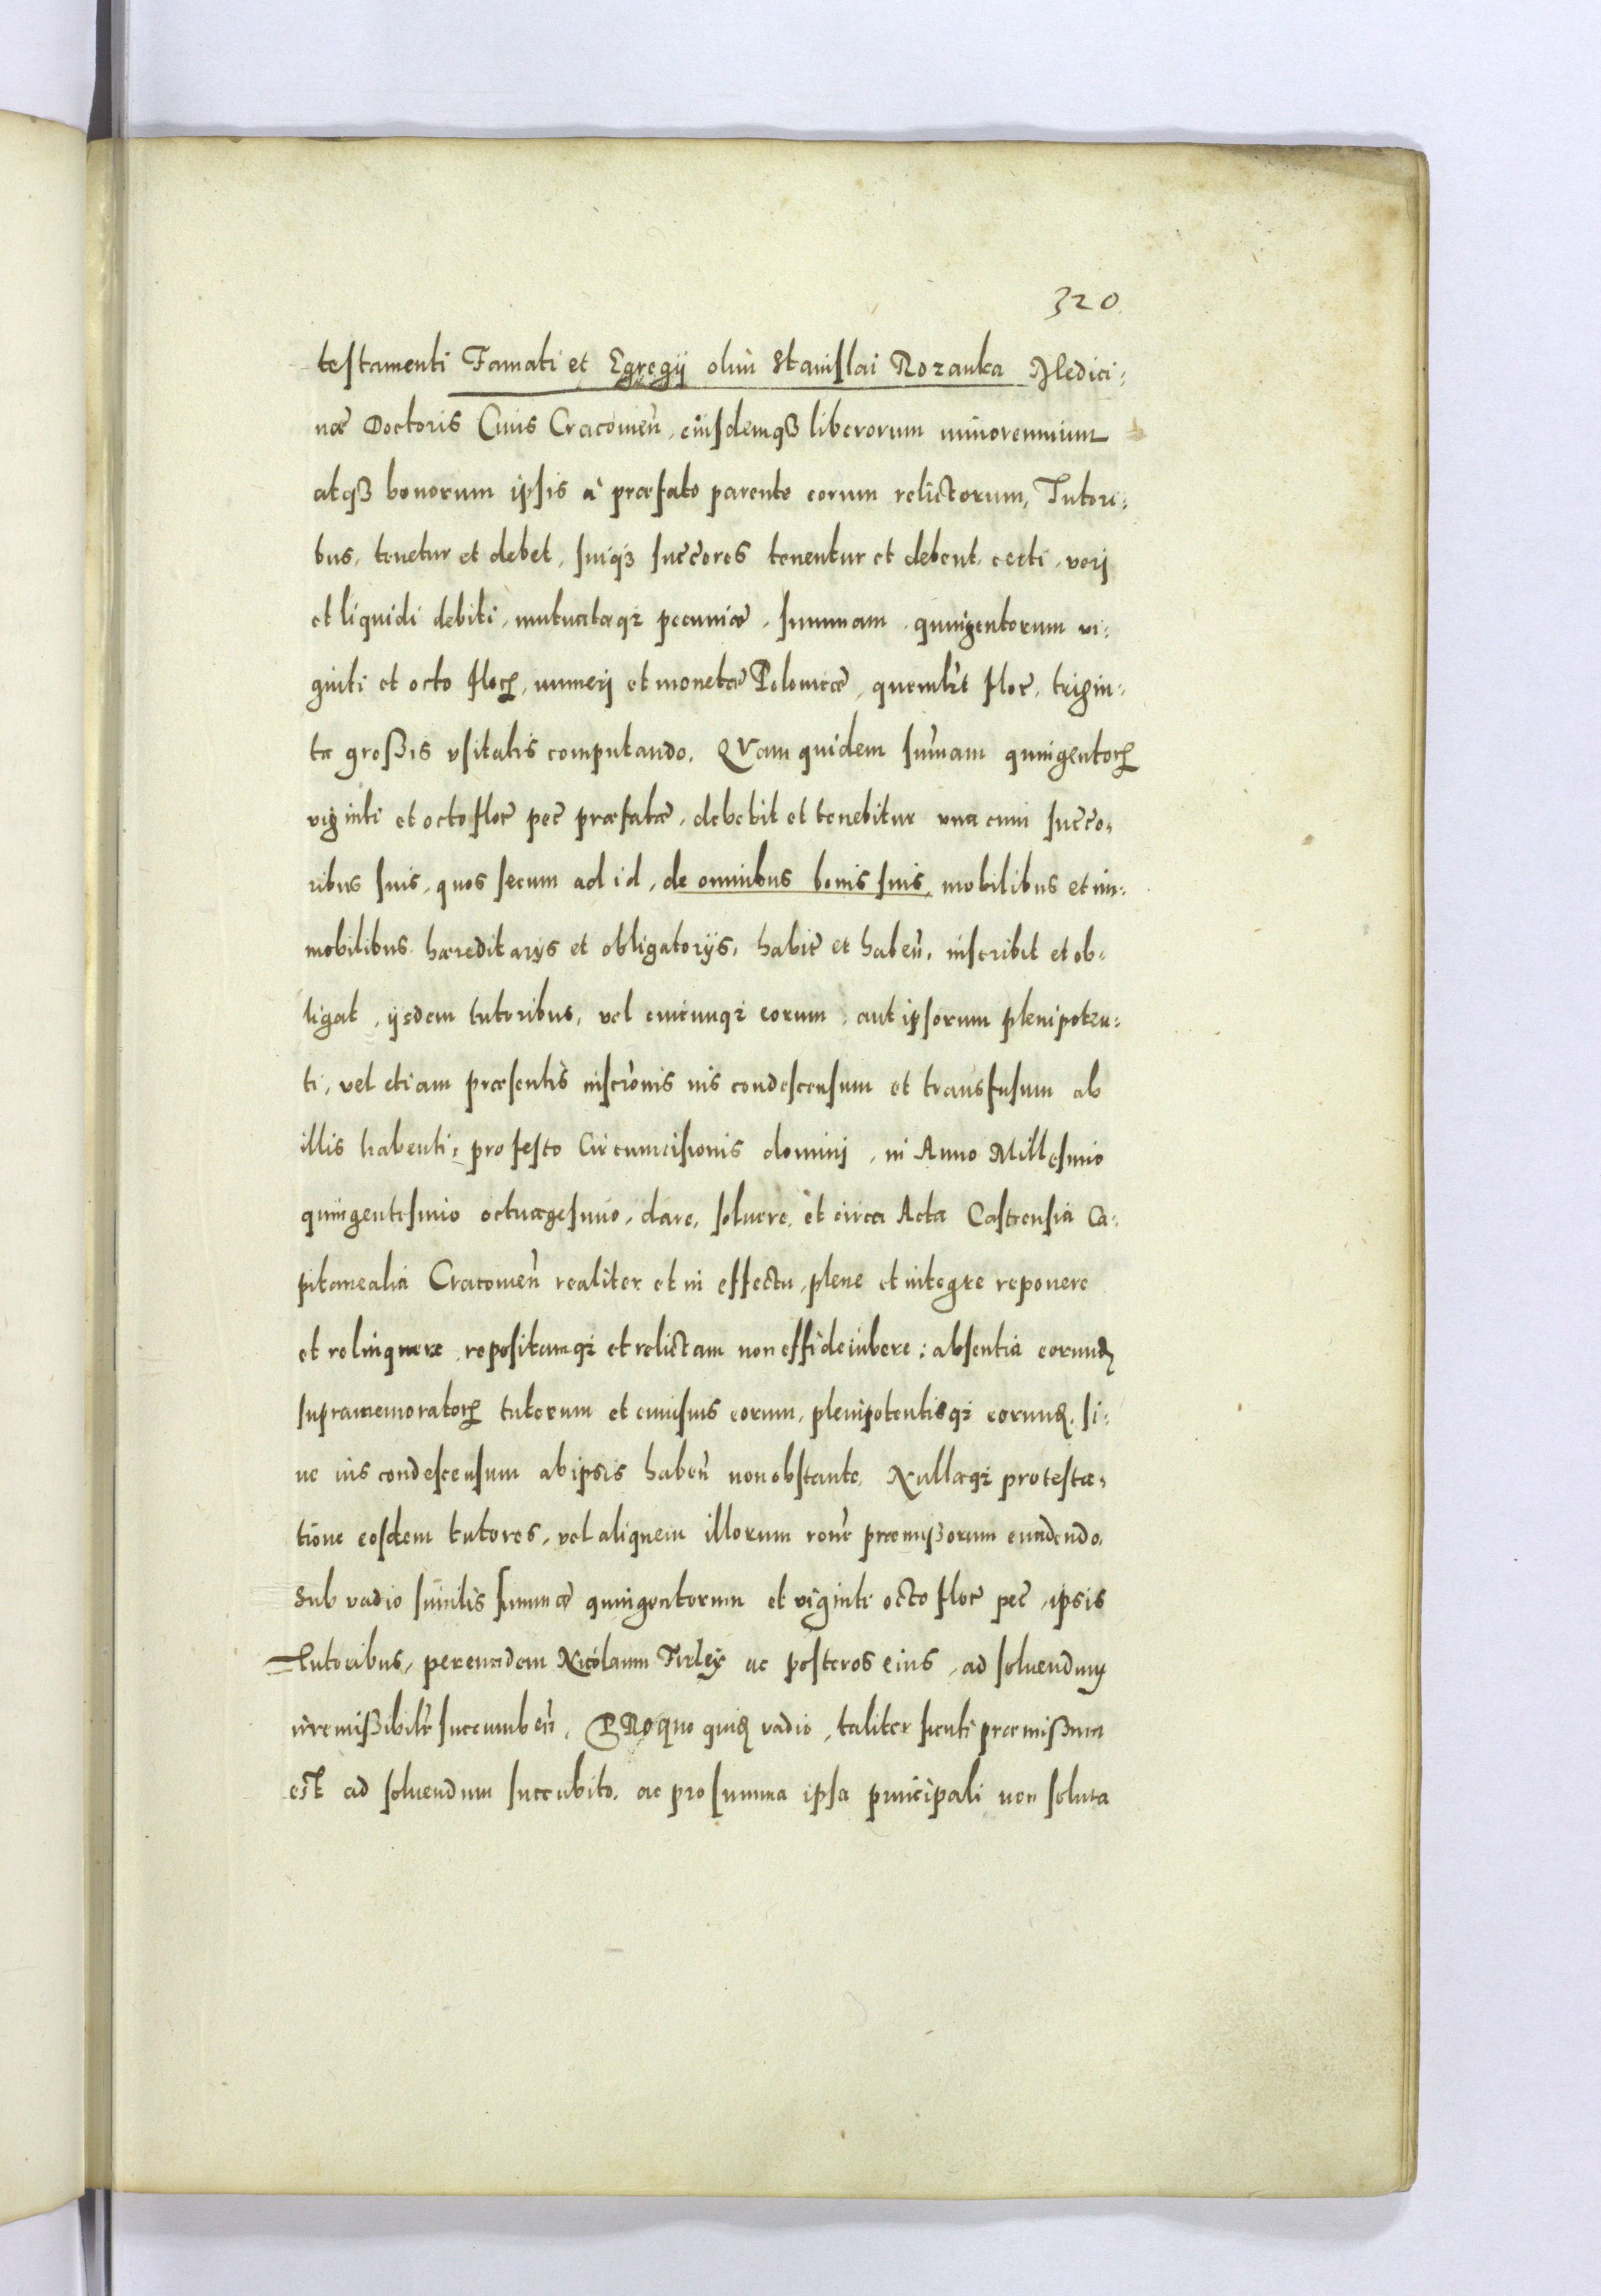 320
testamenti Famati et Egregij olim Stanislai Rozanka Medici:
næ Doctoris Ciuis Cracouień, eiusdemq3 liberorum minorennium
atq3 bonorum ipsis à præfato parente eorum relictorum, Tutori:
bus, tenetur et debet, suiq3 succ̃ores tenentur et debent, certi, veri
et liquidi debiti, mutuatæq3 pecuniæ, summam quingentorum vi:
ginti et octo floꝝ, numeri et monetæ Polonicæ, quemlib̃t flor̃, trigin:
ta großis vsitatis computando. QVam quidem sum̃am quingentoꝝ
viginti et octo flor̃ pec̃ præfatæ, debebit et tenebitur vna cum succ̃o:
ribus suis, quos secum ad id, de omnibus bonis suis mobilibus et im:
mobilibus hæreditarijs et obligatorijs, habit̃ et habeñ, inscribit et ob:
ligat, ijsdem tutoribus, vel cuicunq3 eorum, aut ipsorum plenipoten:
ti, vel etiam præsentis inscr̃onis ius condescensum et transfusum ab
illis habenti: pro festo Circumcisionis domini, in Anno Millesimo
quingentesimo octuagesimo, dare, soluere, et circa Acta Castrensia Ca:
pitanealia Cracouień realiter et in effectu, plene et integre reponere
et relinquere, repositamq3 et relictam non effideiubere: absentia eorunđ
supramemoratoꝝ tutorum et cuiusuis eorum, plenipotentisq3 eorunđ, si:
ue ius condescensum ab ipsis habeñ non obstante. Nullaq3 protesta:
tione eosdem tutores, vel aliquem illorum roñe præmißorum euadendo.
Sub vadio similis summæ quingentorum et viginti octo flor̃ pec̃, ipsis
Tutoribus, per eundem Nicolaum Firleÿ ac posteros eius, ad soluendum
irremißibilr̃ succumbeñ. PRo quo quiđ vadio, taliter sicuti præmißum
est ad soluendum succubito, ac pro summa ipsa principali non soluta